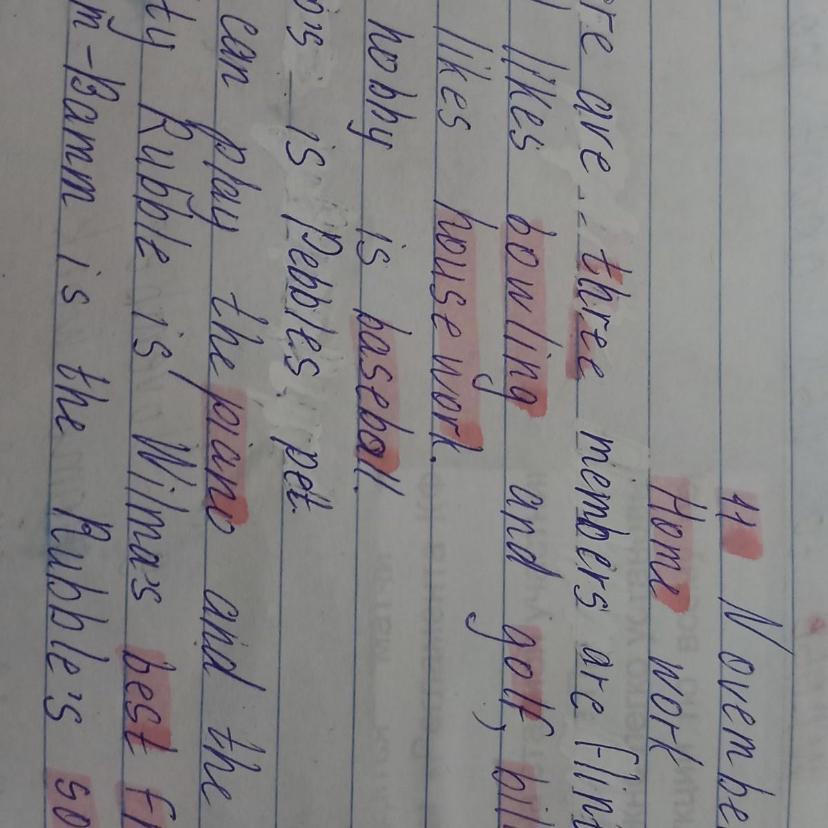 11 November
Home work
are .. three members are Flint
likes bowling and golf, bil
likes house work.
hobby is baseball.
is Pebbles. pet.
can play the piano and the
ty Rubble is Wilma's best fr
m-Bamm is the Rubble's so